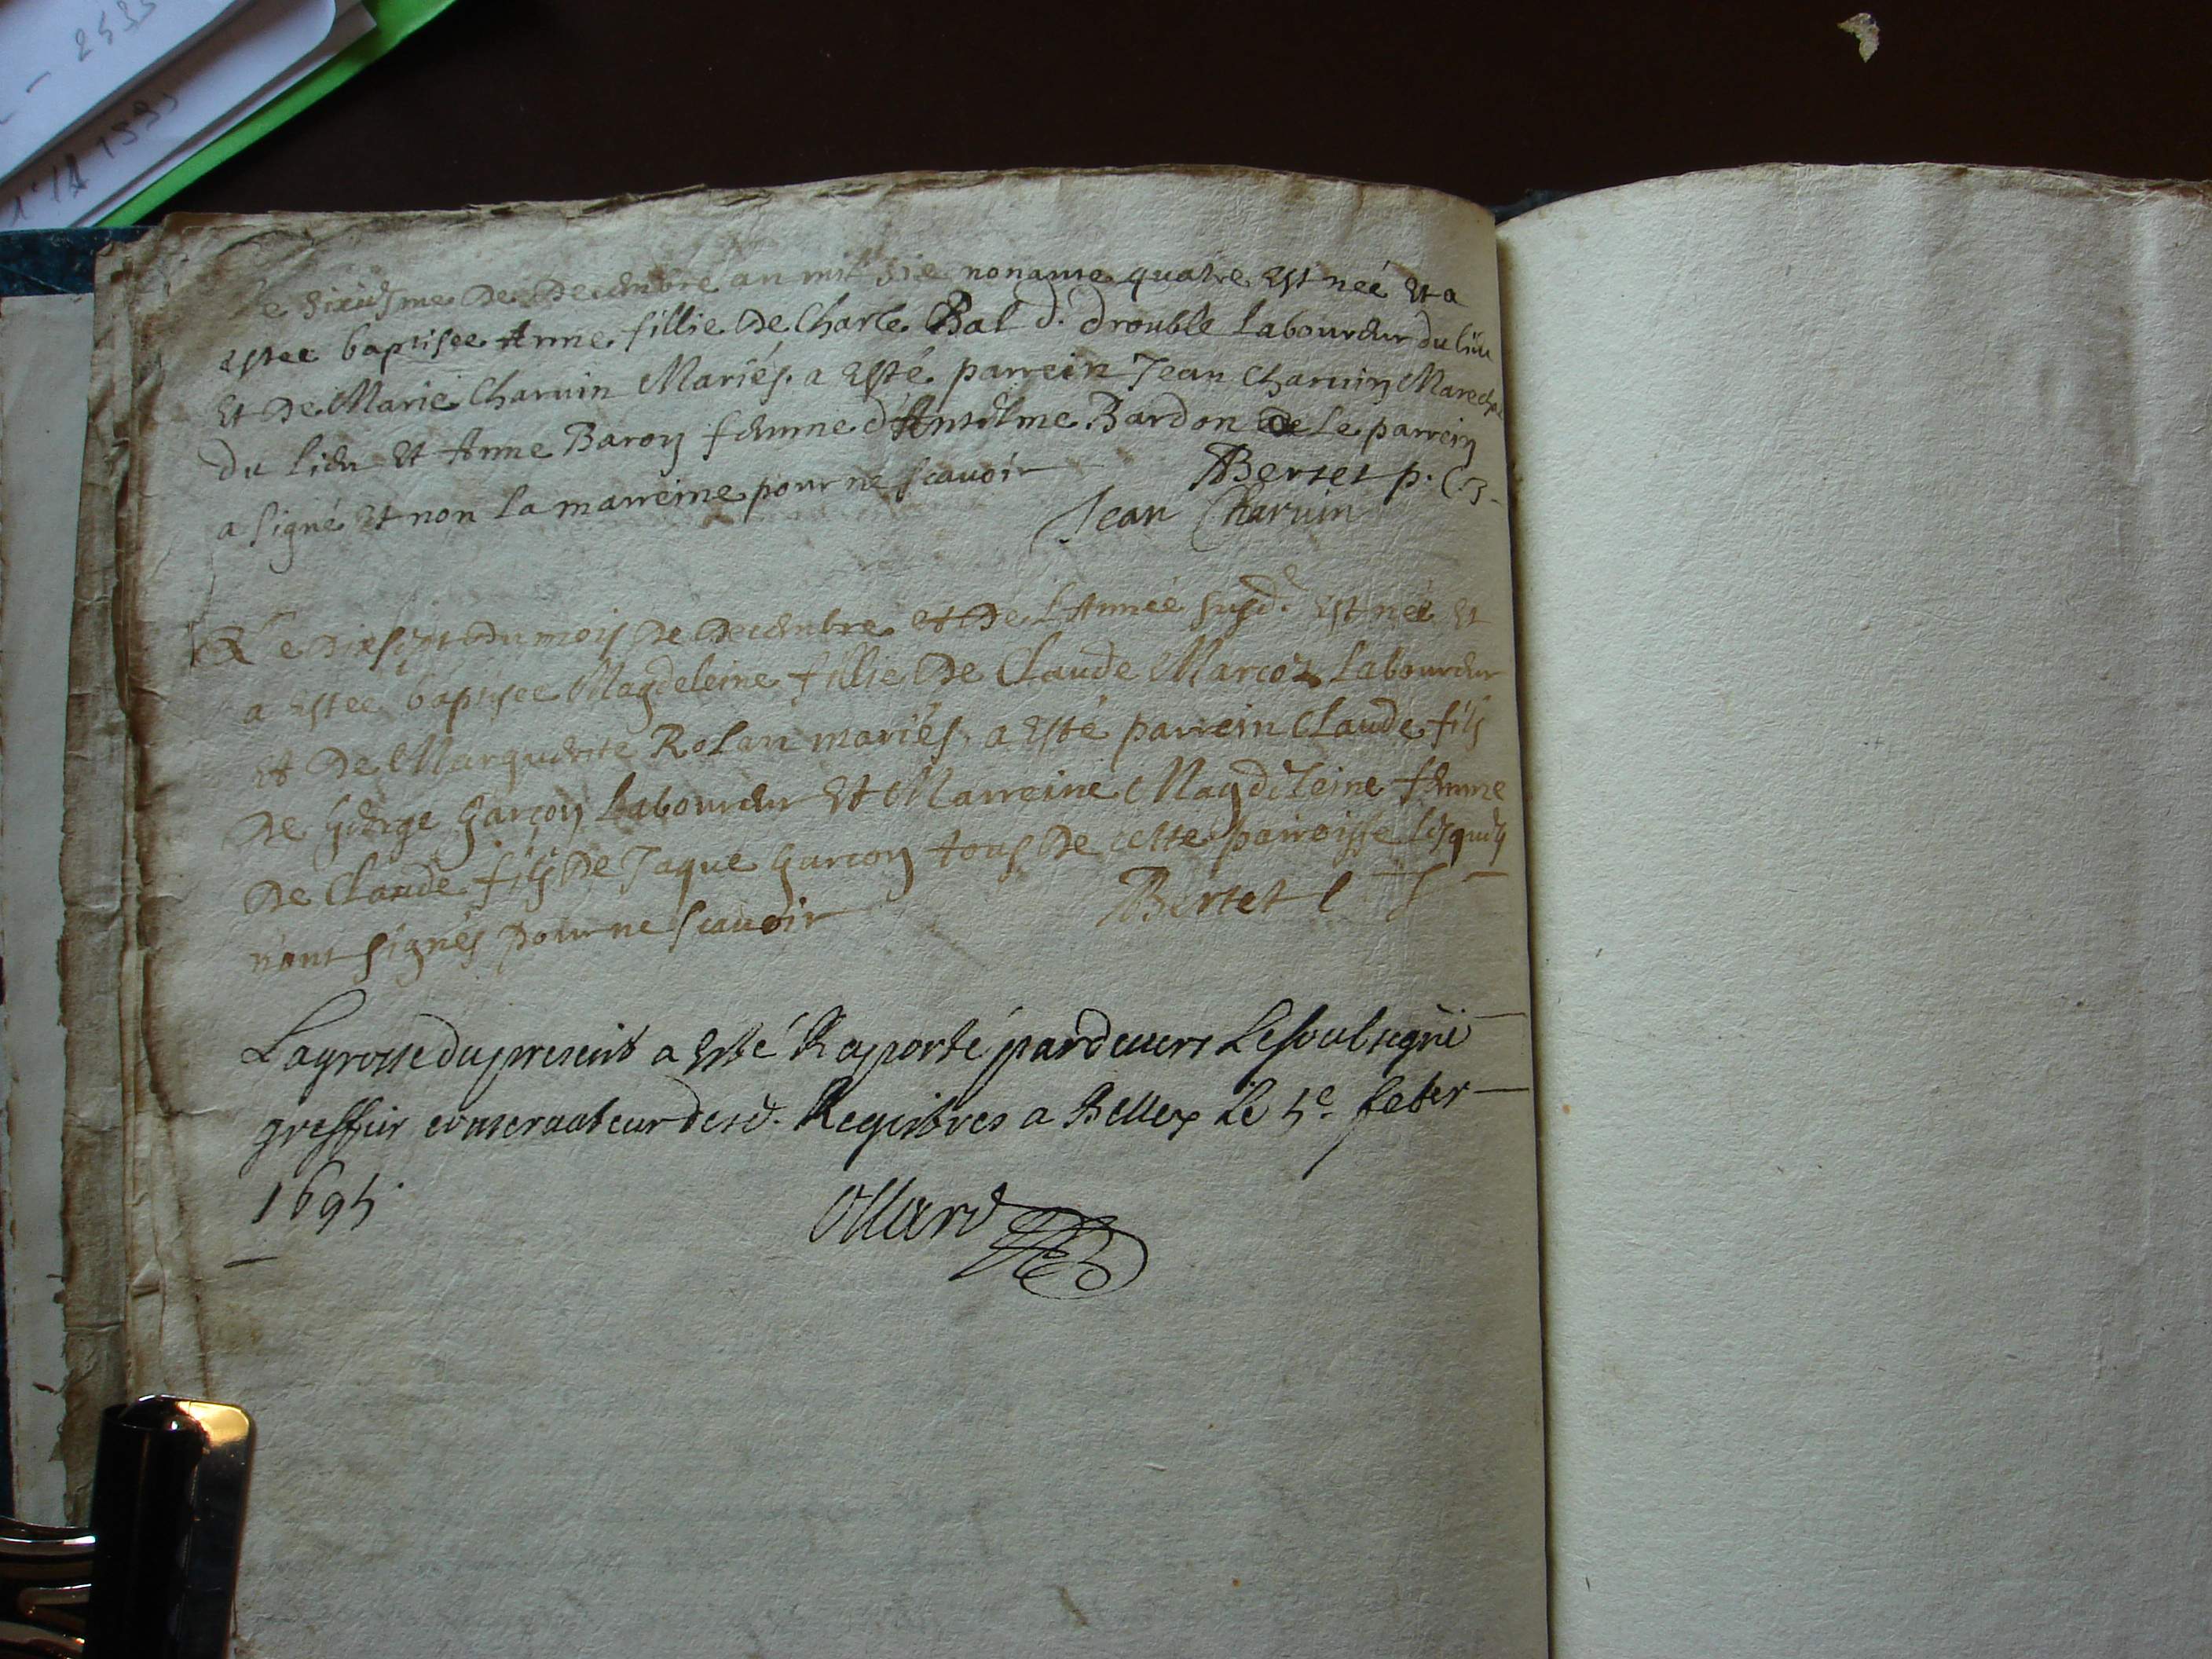 - 2535
1995
Le sixiesme de Decembre an mil sie nonante quatre est neé et a
estee baptisee Anne fillie de Charle Bal d. drouble laboureur du lieu
et de Marie Charuin Mariés. a esté parrein Jean Charuin Marechal
du lieu et Anne Baron femme d'Anselme Bardon le parrein
a signé et non la marreine pour ne scauoir
Bertet p. C.
Jean Charuin
Le dixsept du mois de Decembre et de l'Année susd. est neé et
a estee baptisee Magdeleine fillie de Claude Marcoz laboureur
et de Marguerite Rolan mariés, a esté parrein Claude fils
de George Garçon laboureur et Marreine Magdeleine femme
de Claude fils de Jaque Garcon tous de cette parroisse lesquels
n'ont signés pour ne scauoir
Bertet
La grosse du present a esté Raporté pardeuers Le soubsigné
greffier conseruateur desd. Registres a Belley le 5e feber
1695.
Ollard